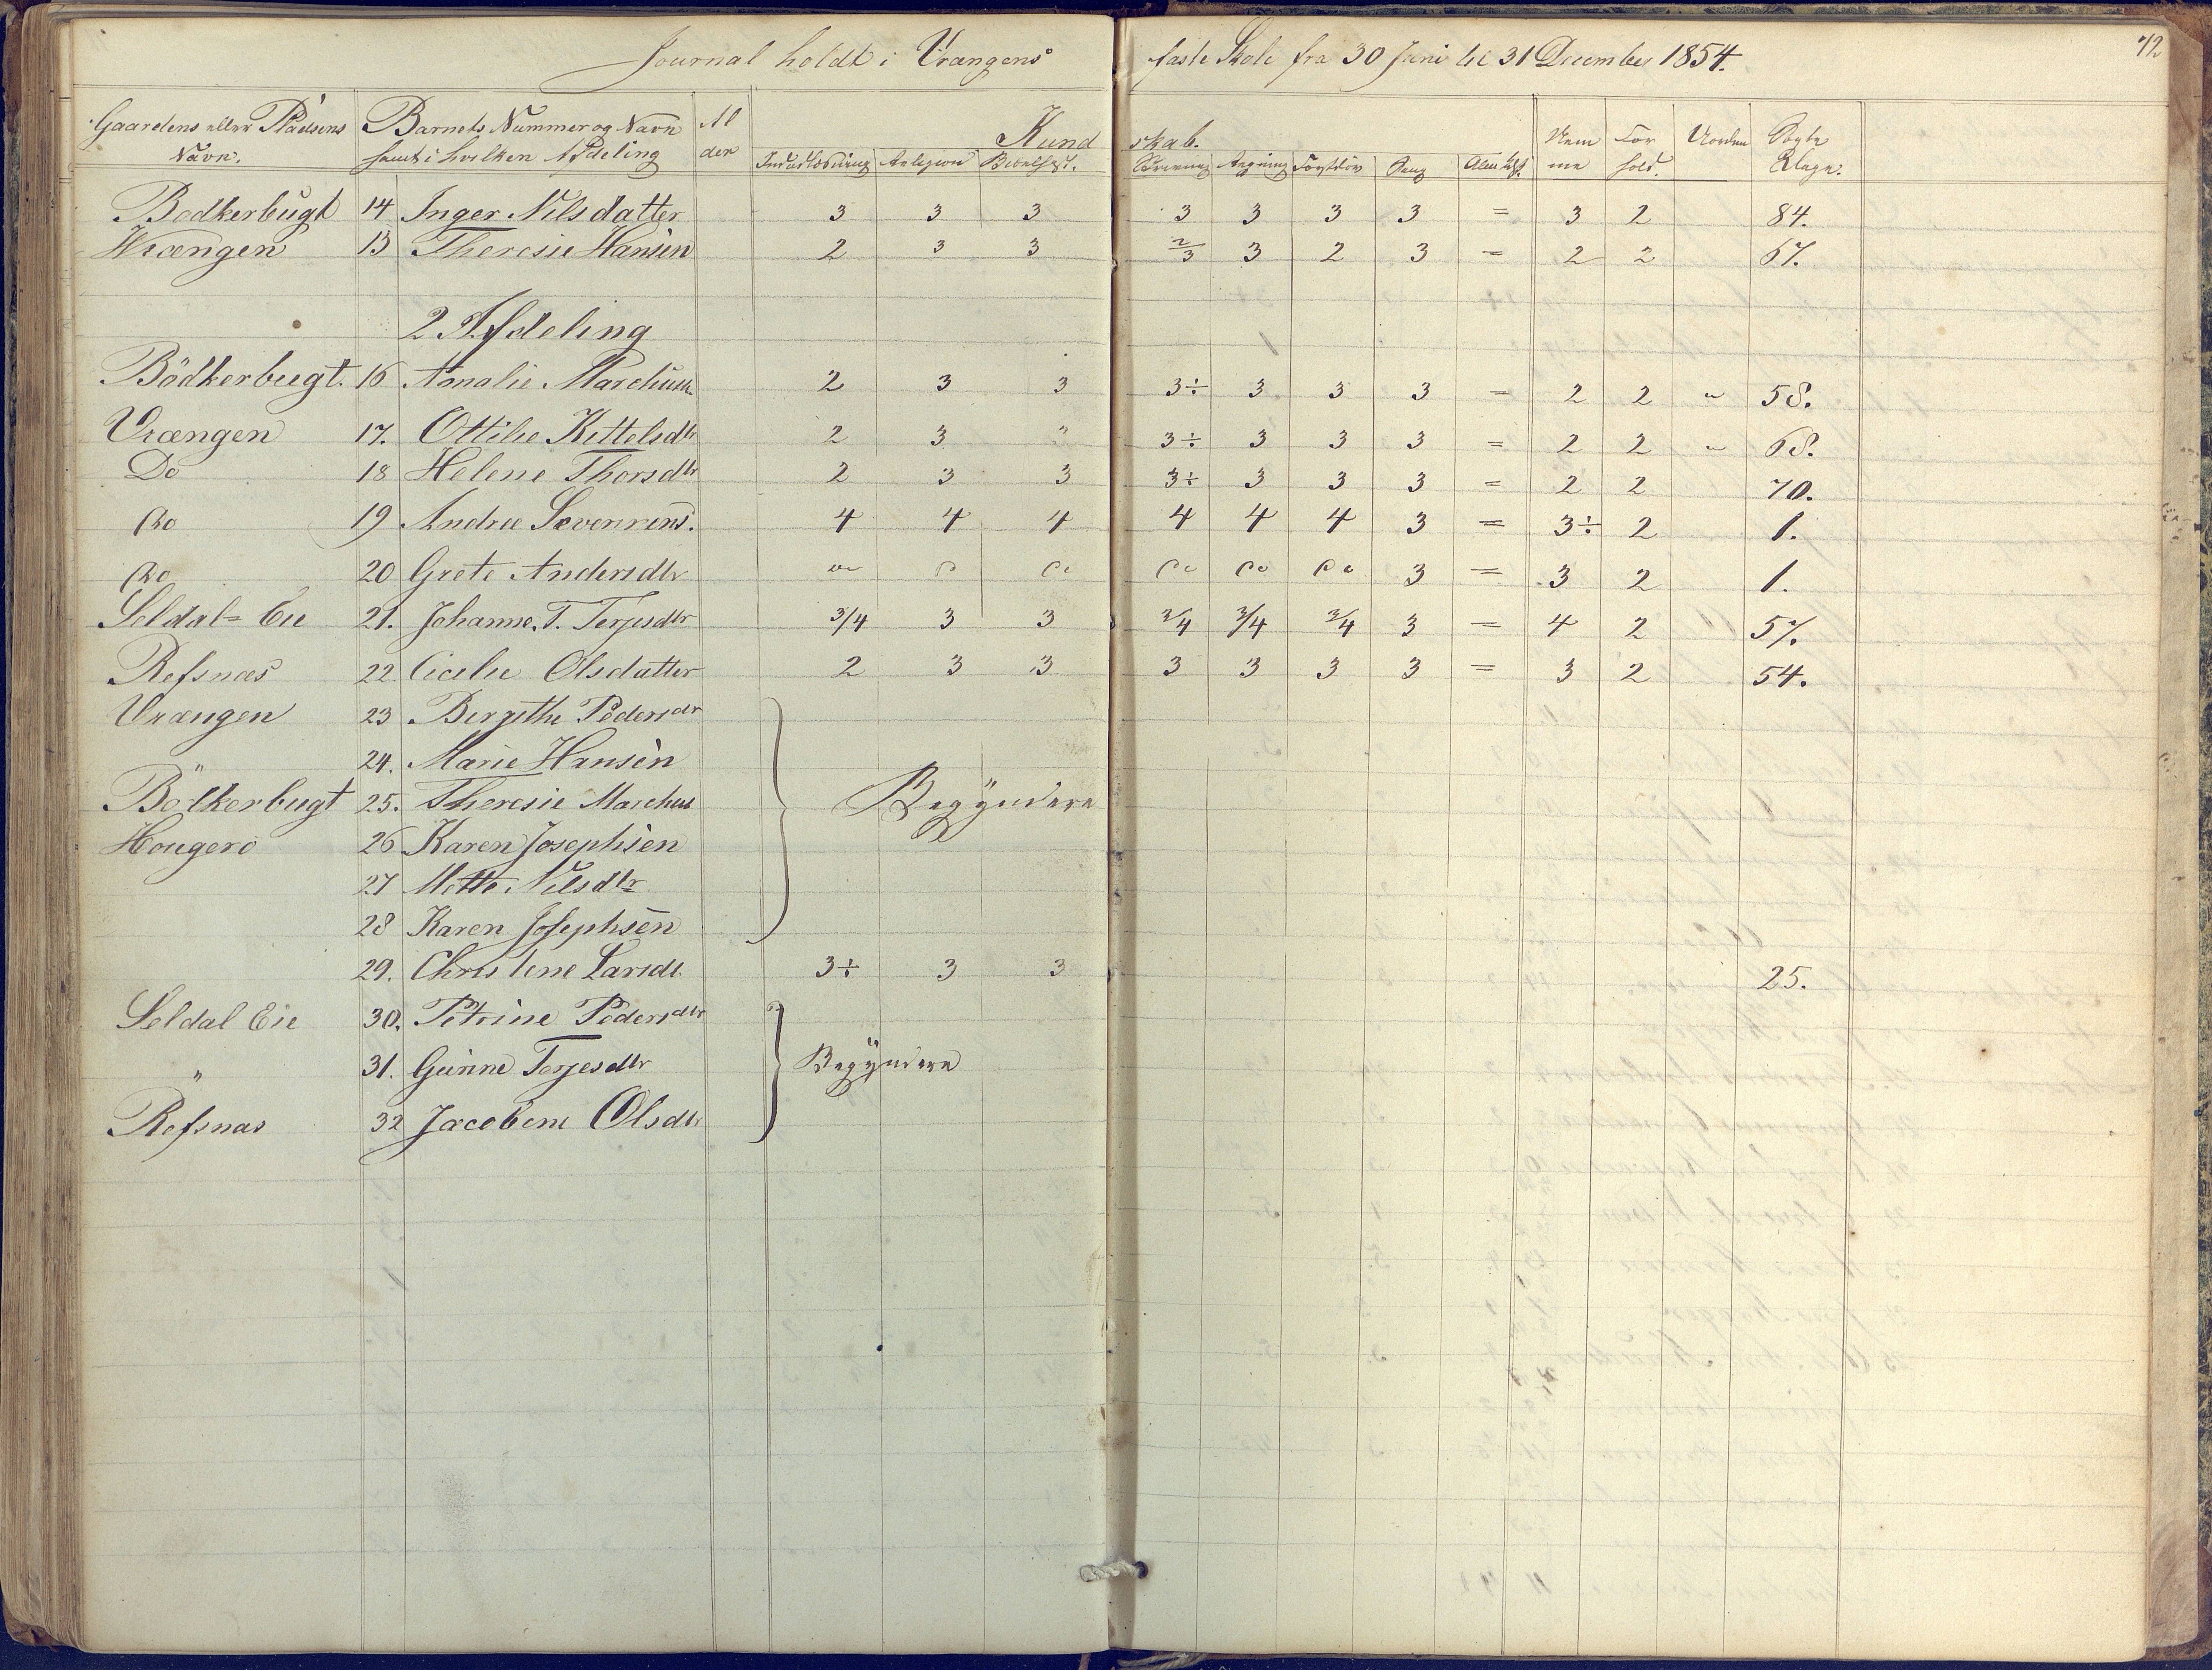 Journal holdt i Vrængens faste Skole fra 30 Juni til 31 December 1854. 72
Gaardens eller Pladsens Navn. Barnets Nummer og Navn samt i hvilken Afdeling Alder Kundskab. Nemme Forhold. Uorden Søgte Dage.
Indenadlæsning Religion Bibelhist. Skrivning Regning Forstlæs Sang
Bødkerbugt 14 Inger Nilsdatter 3 3 3 3 3 3 3 = 3 2 84.
Wrængen 15 Theresie Hansen 2 3 3 2/3 3 2 3 = 2 2 67.
2 Afdeling
Bödkerbugt. 16 Amalie Marchuss. 2 3 3 3÷ 3 3 3 = 2 2 " 58.
Vrængen 17. Ottilie Kittelsdtr 2 3 " 3÷ 3 3 3 = 2 2 " 68.
Do 18 Helene Thorsdtr 2 3 3 3÷ 3 3 3 = 2 2 70.
Do 19 Andree Sevenrens. 4 4 4 4 4 4 3 = 3÷ 2 1.
Do 20 Grete Andersdtr 3 = 3 2 1.
Seldal= Eie 21. Johanne. T. Terjesdtr 3/4 3 3 3/4 3/4 3/4 3 = 4 2 57.
Refsnæs 22. Cicilie Olsdatter 2 3 3 3 3 3 3 = 3 2 54.
Vrængen 23 Bergithe Pedersdtr
24. Marie Hansèn
Bödkerbugt 25. Theresie Marchus Begÿndere
Hougerö 26 Karen Josephsèn
27 Mette Nilsdtr
28 Karen Josephsèn
29. Christine Larsdt. 3÷ 3 3 25.
Seldal Eie 30. Petrine Pedersdtr
" 31. Gunne Terjesdtr Begÿndere
Refsnæs 32 Jacobene Olsdtr